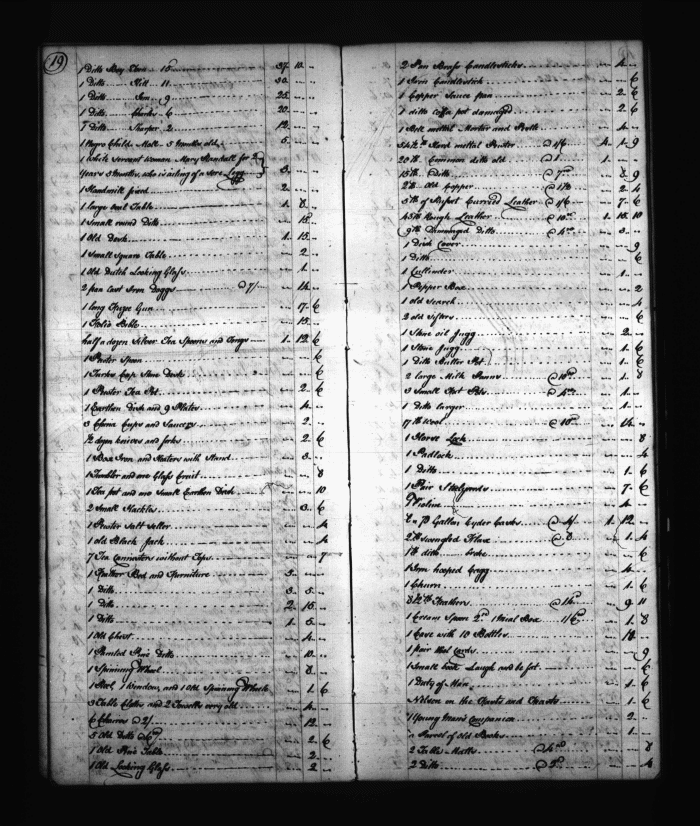 19
1 Ditto Boy Tom 15 37 10
1 Ditto Will 11 30
1 Ditto Sam 9 25
1 Ditto Charles 6 20
1 Ditto Sharper 2 12
1 Negro Child Male 3 Months old 5
1 White Servant Woman Mary for 2
Years 3 Months, who is ailing of a Sore Legg 3
1 Handmill fixed 2
1 large Oval Table 1 8
1 Small round Ditto 15
1 Old Desk 1 15
1 Small Square Table 2
1 Old Dutch Looking Glass 1
2 pair Cast Iron Doggs @ 7/ 14
1 long Gun 17 6
1 Folio Bible 15
half a dozen Silver Tea Spoons and Tongs 1 12 6
1 Pewter Spoon 6
1 Cup Stone Dish 6
1 Pewter Tea Pot 2 6
1 Earthen Dish and 9 Plates 4
3 China Cups and Saucers 2
½ dozen knives and forks 2 6
1 Box Iron and Heaters with Stand 3
1 Tumbler and one Glass Cruit 8
1 Tea pot and one Small Earthen Dish 10
2 Small Hackles 3 6
1 Pewter Salt Seller 4
1 old Black Jack 4
7 Tea Cannisters without Tops 7
1 Feather Bed and Furniture 5
1 Ditto 3 5
1 Ditto 2 15
1 Ditto 1 5
1 Old Chest 4
1 Painted Pine Ditto 10
1 Spinning Wheel 8
1 Reel 1 and 1 Old Spinning Wheel 1 6
3 Table Cloths and 2 Towells very old 4
6 Chairs @ 2/ 12
5 Old Ditto @ 6d 2 6
1 Old Pine Table 2
1 Old Looking Glass 2
2 Pair Brass Candlesticks 4
1 Iron Candlestick 6
1 Copper Sauce pan 2 6
1 ditto Coffee pot damaged 2 6
1 Bell mettal Morter and Pestle 4
hard mettal Pewter @ 1/6 4 1 9
20 lb Common ditto old @ 1 1
15 lb Ditto @ 7d 8 9
2 lb Old Copper @ 1/2 2 4
5 lb of Curried Leather @ 1/6 7 6
45 lb Rough Leather @ 10d 1 18 10
9 lb Dammaged Ditto @ 4d 3
1 Dish Cover 9
1 Ditto 6
1 Cullinder 1
1 Pepper Box 2
1 old Search 4
2 old Sifters 6
1 Stone oil Jugg 2
1 Stone Jugg 1 6
1 Ditto Butter Pot 1 6
2 large Milk Panns @ 10d 1 8
3 Small Ditto @ 4d 1
1 Ditto larger 1
17 lb Wool @ 10d 14
1 Horse Lock 8
1 Padlock 4
1 Ditto 1 6
1 Pair Stilyards 7 6
1 Violine 4
Gallon Cyder Casks @ 4/ 1 12
2 lb Swingled Flax @ 8 1 4
1 lb ditto broke 6
1 Iron hooped Cagg 4
1 Churn 1 6
Feathers @ 14d 9 11
1 Cream Spoon 2d 1 Box 1/6 1 8
1 Case with 10 Bottles 10
1 pair Wool Cards 9
1 Small book Laugh and be fat 6
1 Duty of Man 1 6
Nelson on the Feasts and Fasts 1 6
1 Young Man's Companion 2
a Parcel of old Books 1
2 Table Matts @ 4d 8
2 Ditto @ 2d 4